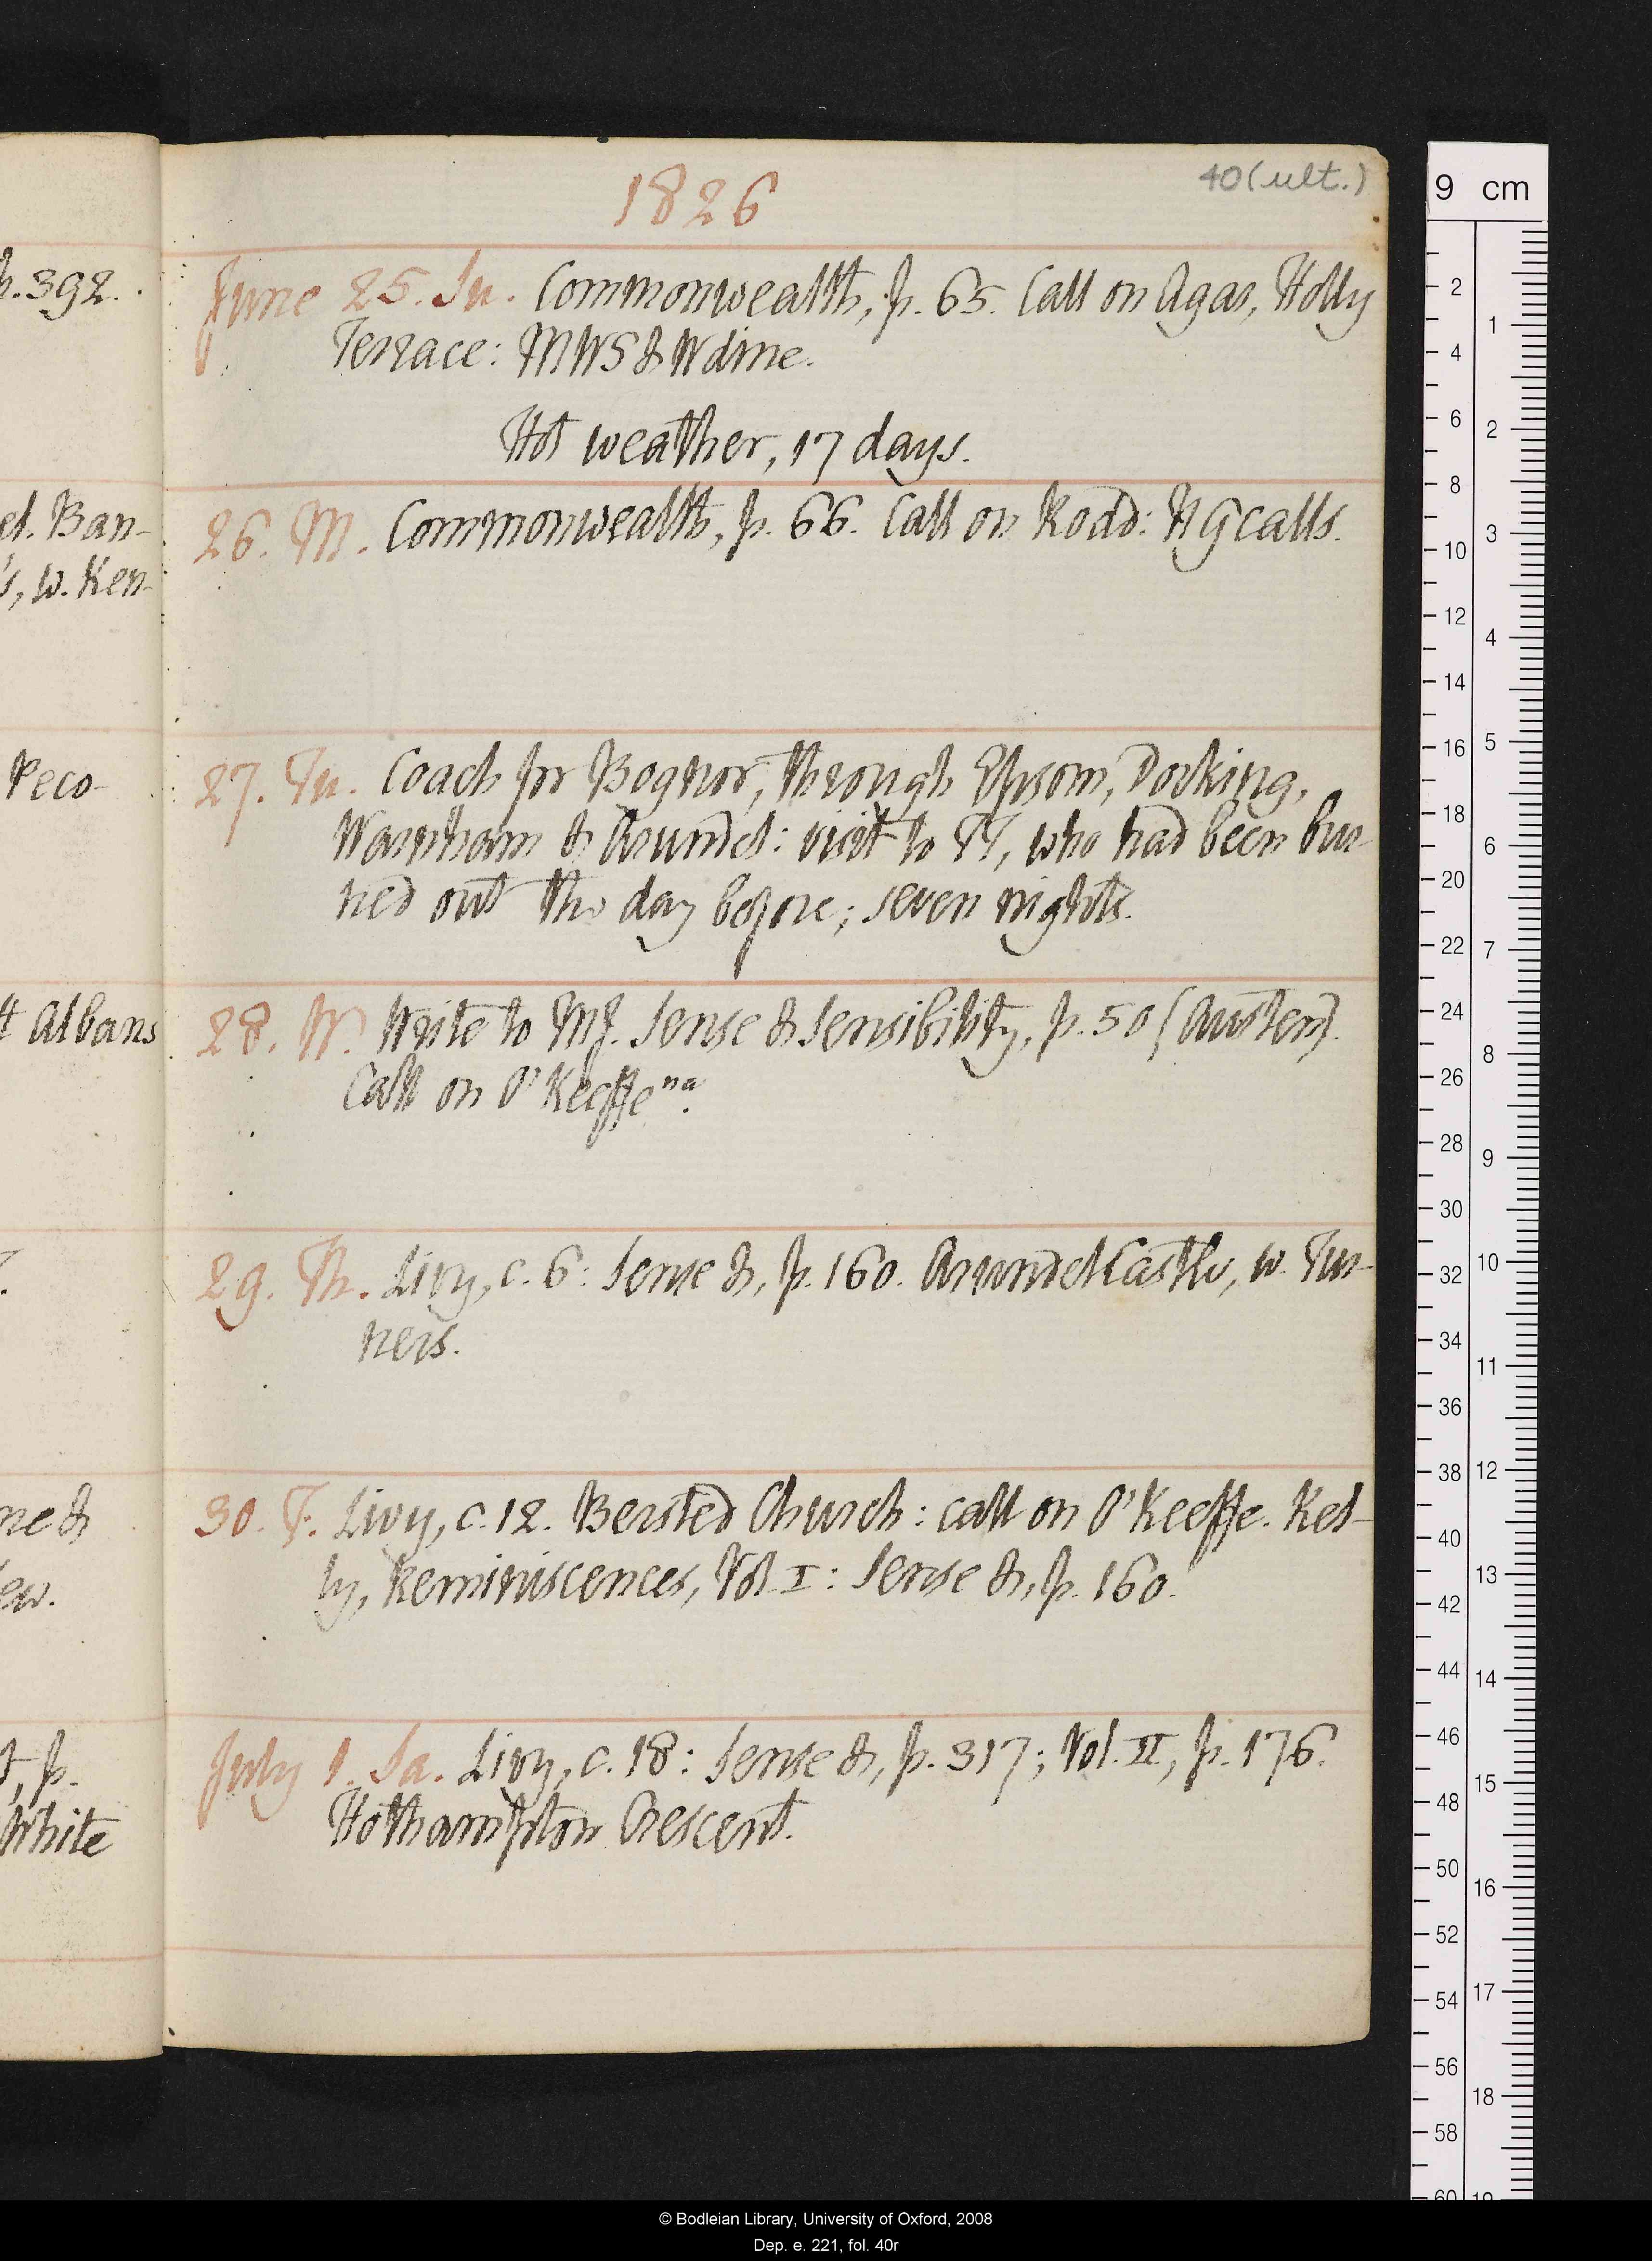 40 (ult.)
1826
p. 392.
June 25. Su. Commonwealth, p. 65. Call on Agar, Holly
Terrace: MWS & W dine.
Hot weather, 17 days.
26. M. Commonwealth, p. 66. Call on Rodd: HG calls.
27. Tu. Coach for Bognor, through Epsom, Dorking,
Warnham & Arundel: visit to TT, who had been bur-
ned out the day before; seven nights.
28. W. Write to MJ. Sense & Sensibility, p. 50 (Austen).
Call on O'Keeffe na.
29. Th. Livy, c. 6: Sense &, p. 160. Arundel Castle, w. Tur-
ners.
30. F. Livy, c. 12. Bersted Church: call on O'Keeffe. Kel-
ly, Reminiscences, Vol I: Sense &, p. 160.
July 1. Sa. Livy, c. 18: Sense &, p. 317; Vol. II, p. 176.
Hothampton Crescent.
el. Ban-
s, w. Ken-
Reco-
t Albans
ne &
ew.
p.
White
9 cm
2 4 6 8 10 12 14 16 18 20 22 24 26 28 30 32 34 36 38 40 42 44 46 48 50 52 54 56 58 60
1 2 3 4 5 6 7 8 9 10 11 12 13 14 15 16 17 18 19
© Bodleian Library, University of Oxford, 2008
Dep. e. 221, fol. 40r